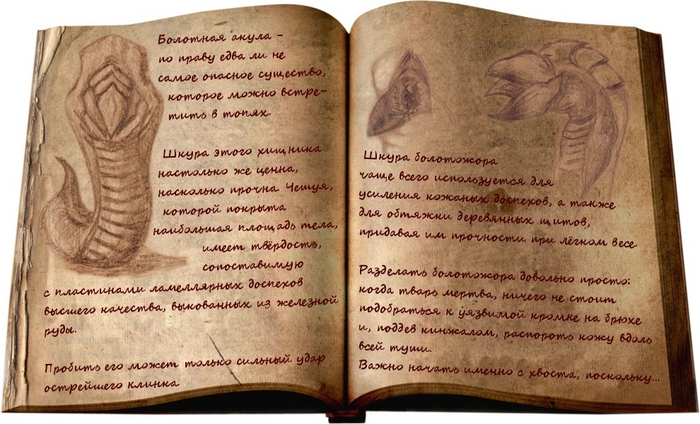 Болотная акула –
по праву едва ли не
самое опасное существо,
которое можно встре-
тить в топях.
Шкура этого хищника
настолько же ценна,
насколько прочна. Чешуя,
которой покрыта
наибольшая площадь тела,
имеет твёрдость,
сопоставимую
с пластинами ламеллярных доспехов
высшего качества, выкованных из железной
руды.
Пробить его может только сильный удар
острейшего клинка.
Шкура болотожора
чаще всего используется для
усиления кожаных доспехов, а также
для обтяжки деревянных щитов,
придавая им прочности при лёгком весе.
Разделать болотожора довольно просто:
когда тварь мертва, ничего не стоит
подобраться к уязвимой кромке на брюхе
и, поддев кинжалом, распороть кожу вдоль
всей туши.
Важно начать именно с хвоста, поскольку...